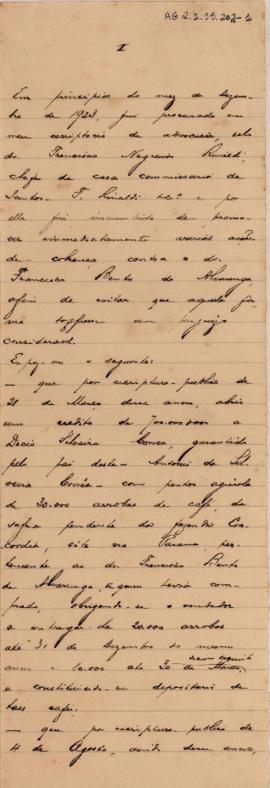 AG 2.2.95.202-1
I
Em principios do mez de Dezem-
bro de 1923, fui procurado em
meu escriptorio de advocacia, pelo
dr. Francisco Negreiros Rinaldi,
chefe da casa commissaria de
Santos - F. Rinaldi & Cª e por
elle fui incumbido de promo-
ver immediatamente varias acções
de cobrança contra o dr.
Francisco Bento de Alvarenga,
afim de evitar que aquella fir-
ma soffresse um prejuizo
consideravel.
Expoz-me o seguinte:
— que por escriptura publica de
21 de Março desse anno, abriu
um credito de 700.000$000 a
Decio Silveira Corrêa, garantido
pelo pai deste - Antonio da Sil-
veira Corrêa - com penhor agricola
de 30.000 arrobas de café, da
safra pendente da fazenda Con-
cordia, sita no Paraná, per-
tencente ao dr. Francisco Bento
de Alvarenga, a quem havia com-
prado, obrigando-se o vendedor
a entregar-lhe 20.000 arrobas
até 31 de Dezembro do mesmo
anno e 10.000 até 20 de Março,
e constituindo-se depositario de
taes cafés.
— que por escriptura publica de
4 de Agosto, ainda desse anno,